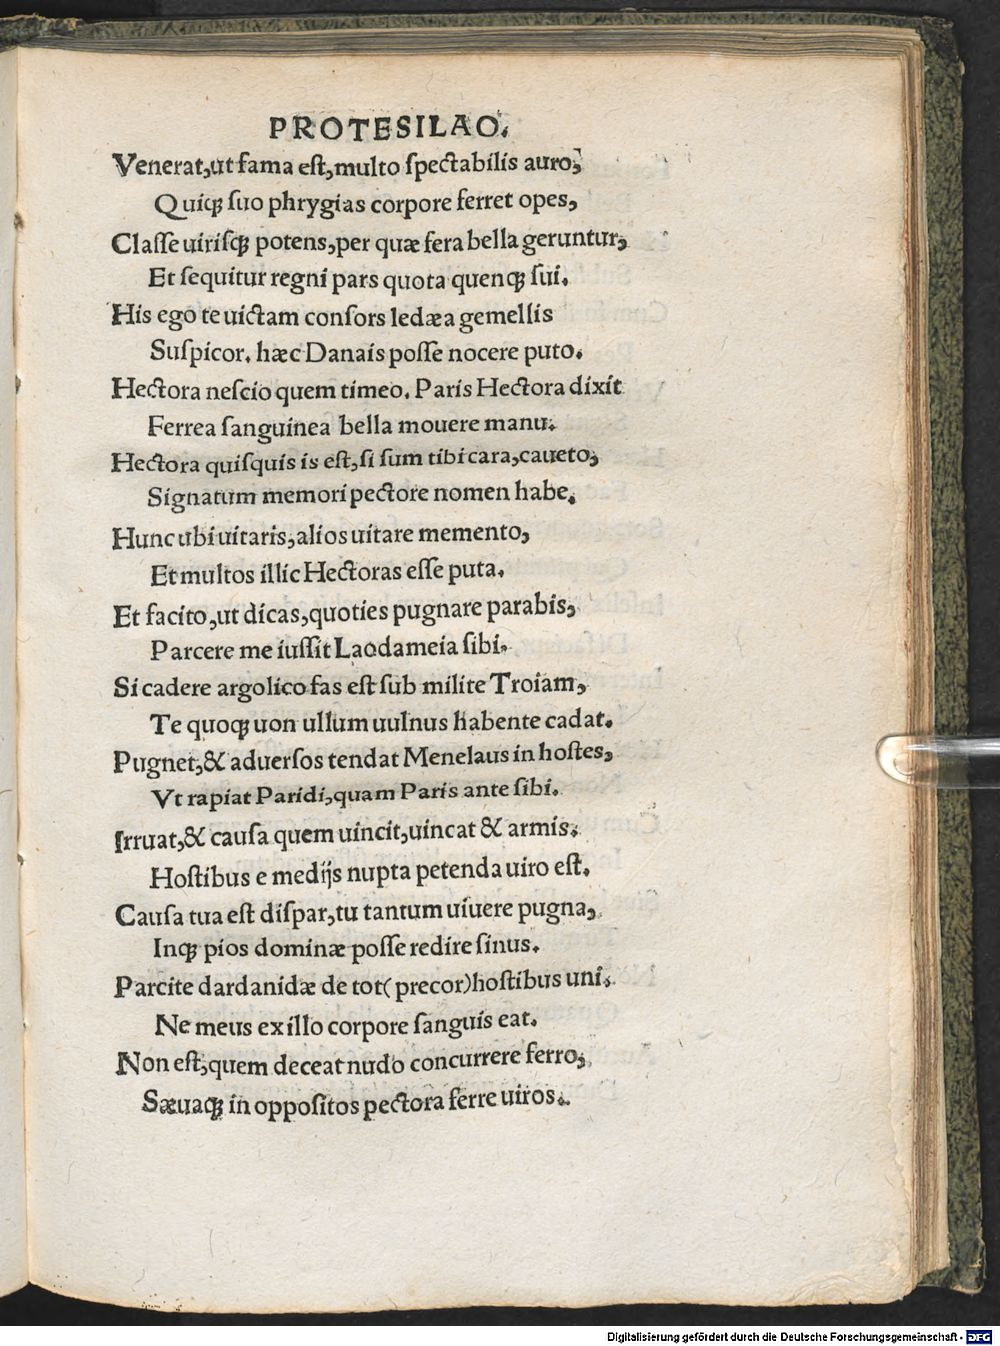 PROTESILAO.
Venerat, ut fama est, multo spectabilis auro,
Quiqȝ suo phrygias corpore ferret opes,
Classe uirisqȝ potens, per quæ fera bella geruntur,
Et sequitur regni pars quota quenqȝ sui.
His ego te uictam consors ledæa gemellis
Suspicor. hæc Danais posse nocere puto.
Hectora nescio quem timeo. Paris Hectora dixit
Ferrea sanguinea bella mouere manu.
Hectora quisquis is est, si sum tibi cara, caueto,
Signatum memori pectore nomen habe.
Hunc ubi uitaris, alios uitare memento,
Et multos illic Hectoras esse puta.
Et facito, ut dicas, quoties pugnare parabis,
Parcere me iussit Laodameia sibi.
Si cadere argolico fas est sub milite Troiam,
Te quoqȝ uon ullum uulnus habente cadat.
Pugnet, & aduersos tendat Menelaus in hostes,
Vt rapiat Paridi, quam Paris ante sibi.
Irruat, & causa quem uincit, uincat & armis.
Hostibus e medijs nupta petenda uiro est.
Causa tua est dispar, tu tantum uiuere pugna,
Inqȝ pios dominæ posse redire sinus.
Parcite dardanidæ de tot (precor) hostibus uni.
Ne meus ex illo corpore sanguis eat.
Non est, quem deceat nudo concurrere ferro,
Sæuaqȝ in oppositos pectora ferre uiros.
Digitalisierung gefördert durch die Deutsche Forschungsgemeinschaft - DFG